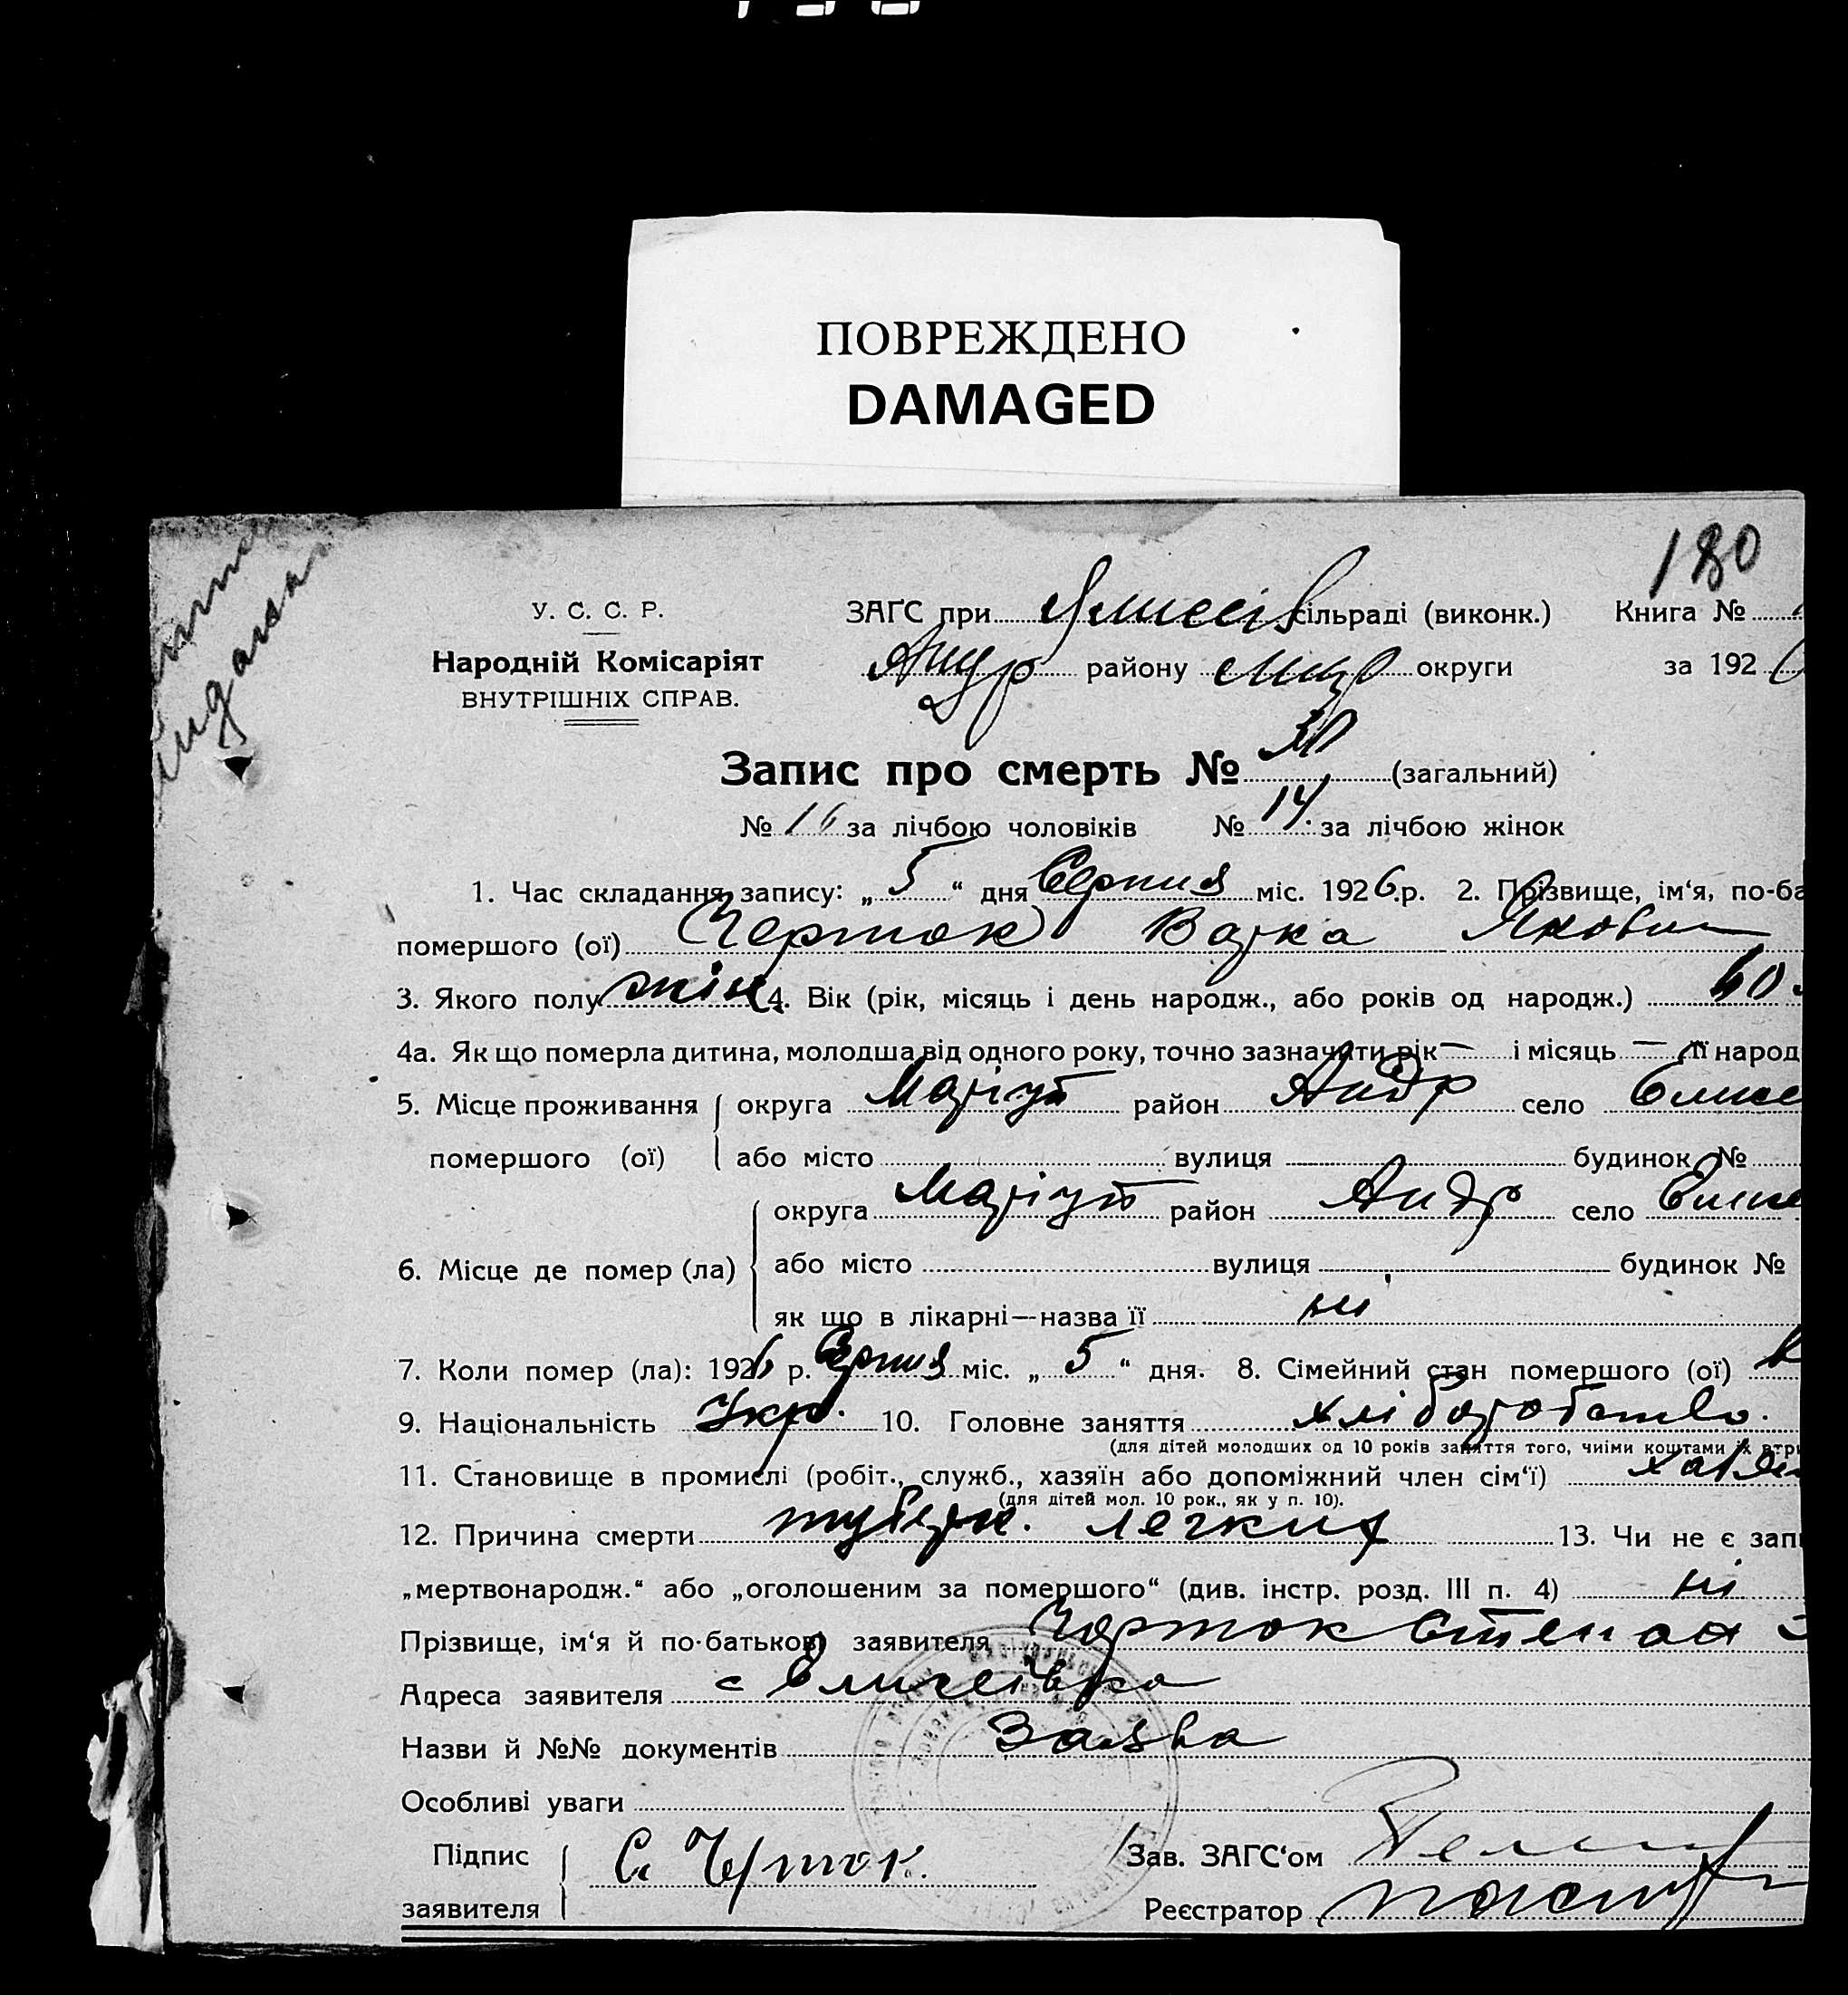 ПОВРЕЖДЕНО
DAMAGED
180
У. С. С. Р.
Народній Комісаріят
ВНУТРІШНІХ СПРАВ.
ЗАҐС при сільраді (виконк.) Книга №
району округи за 192
Запис про смерть № 30 (загальний)
№ 16 за лічбою чоловіків № 14 за лічбою жінок
1. Час складання запису: „5“ дня Серпня міс. 1926 р. 2. Прізвище, ім‘я, по-ба
помершого (ої) Черток Яковл
3. Якого полу жін 4. Вік (рік, місяць і день народж., або років од народж.) 60
4а. Як що померла дитина, молодша від одного року, точно зазначити рік — і місяць — її народ
5. Місце проживання округа Маріуп район Андр село Елисе
помершого (ої) або місто вулиця будинок №
округа Маріуп район Андр село Елисе
6. Місце де помер (ла) або місто вулиця будинок №
як що в лікарні—назва її ні
7. Коли помер (ла): 1926 р. Серпня міс. „5“ дня. 8. Сімейний стан помершого (ої) в
9. Національність Укр. 10. Головне заняття хліборобство.
(для дітей молодших од 10 років заняття того, чиїми коштами їх втри
11. Становище в промислі (робіт., служб., хазяїн або допоміжний член сім‘ї) хазяін
(для дітей мол. 10 рок., як у п. 10).
12. Причина смерти туберк. легких 13. Чи не є запи
„мертвонародж.“ або „оголошеним за помершого“ (див. інстр. розд. III п. 4) ні
Прізвище, ім‘я й по-батькові заявителя Черток Степан
Адреса заявителя с Елисеівка
Назви й №№ документів Заява
Особливі уваги
Підпис заявителя С. Черток. Зав. ЗАҐС‘ом
Реєстратор